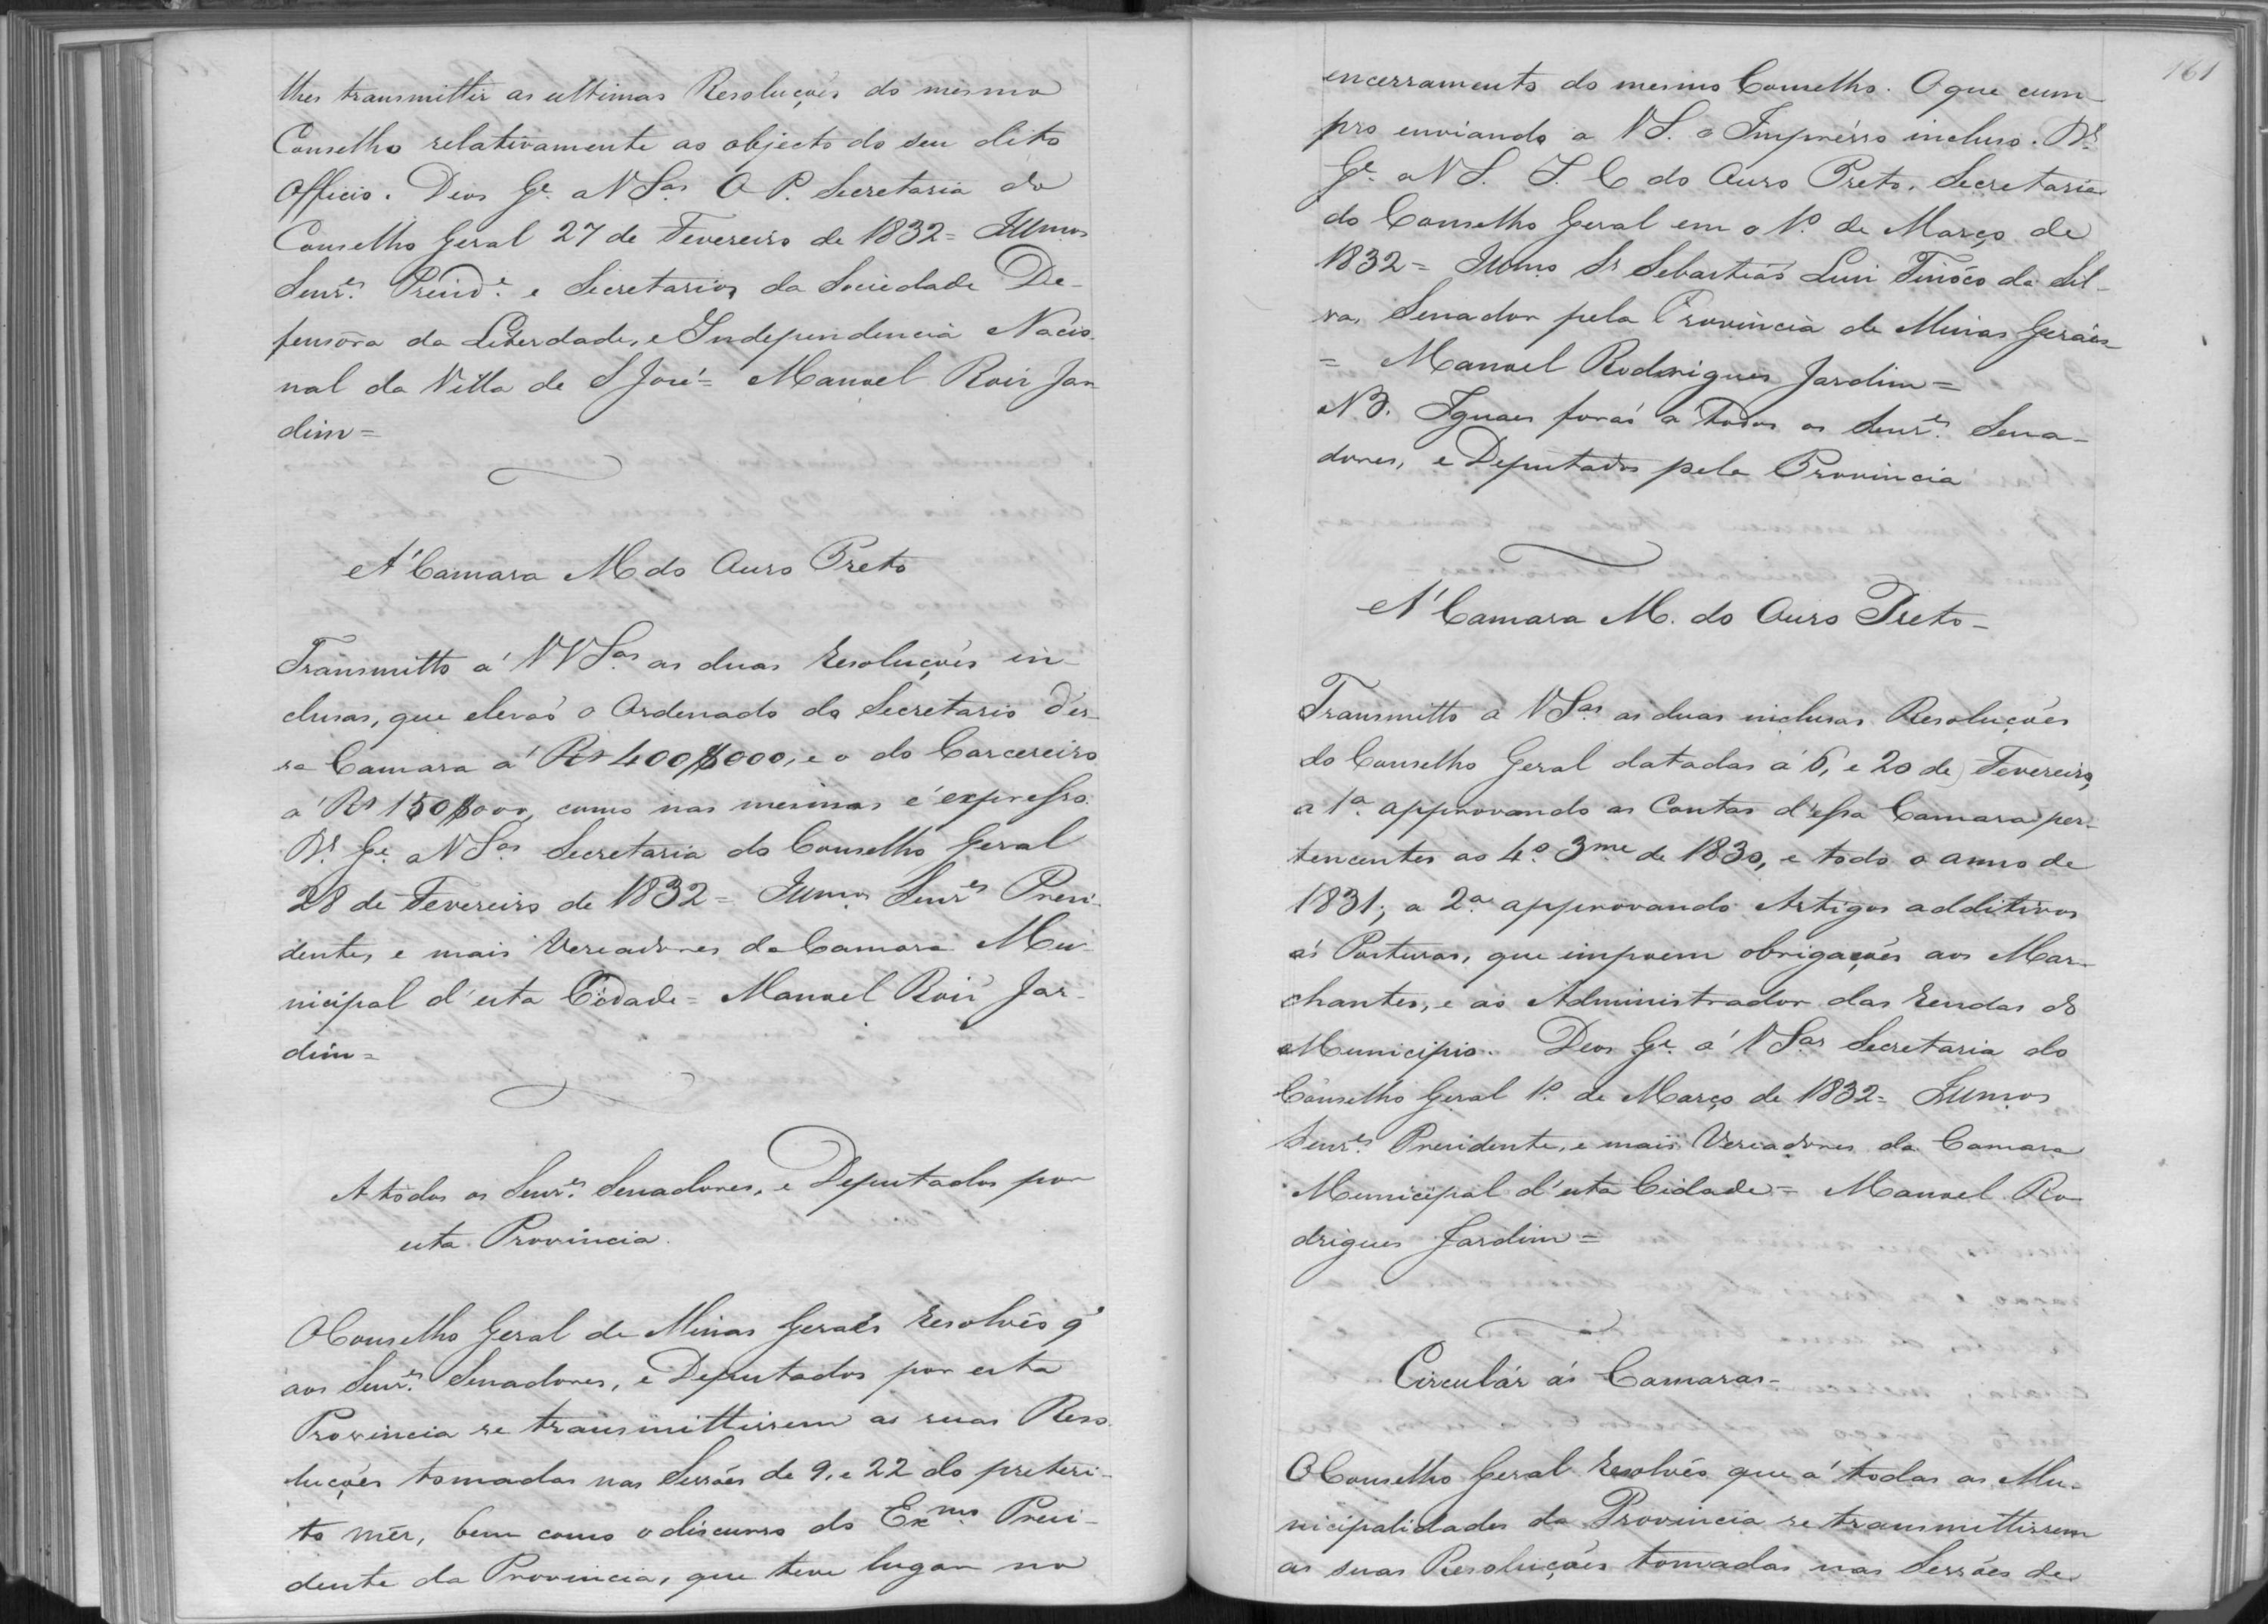 lhes transmittir as ultimas Resoluções do mesmo
Conselho relativamente ao objecto do seu dito
Officio. Deos Ge. a VSas. O P. Secretaria do
Conselho Geral 27 de Fevereiro de 1832 = Illmos
Senr.es Presid.e e Secretarios da Sociedade De-
fensôra da Liberdade, e Independencia Nacio-
nal da Villa de S José = Manoel Roiz Jar
dim =
A' Camara M do Ouro Preto
Transmitto a' VVSas as duas Resoluções in-
clusas, que elevaõ o Ordenado do Secretario d'es-
sa Camara a' Rs 400$000, e o do Carcereiro
a' Rs 150$000, como nas mesmas é expresso.
Ds. Ge. a VSas Secretaria do Conselho Geral
28 de Fevereiro de 1832 = Illmos Senr.es Presi-
dente, e mais Vereadores da Camara Mu-
nicipal d'esta Cidade = Manoel Roiz Jar-
dim =
A todos os Senr.es Senadores, e Deputados por
esta Provincia.
O Conselho Geral de Minas Geraes Resolvêo q'
aos Senr.es Senadores, e Deputados por esta
Provincia se transmittissem as suas Reso-
luções tomadas nas Sessões de 9, e 22 do preteri-
to mêz, bem como o discurso do Exmo Presi-
dente da Provincia, que teve lugar no
161
encerramento do mesmo Conselho. O que cum-
pro enviando a VS. o Imprésso incluso. Ds.
Ge. a VS. I. C do Ouro Preto. Secretaria
do Conselho Geral em o 1º de Março de
1832 = Illmo Sr Sebastiaõ Luis Tinôco da Sil-
va, Senador pela Provincia de Minas Geráes
= Manoel Rodrigues Jardim =
NB. Iguaes foraõ a' todos os Senr.es Sena-
dores, e Deputados pela Provincia
A' Camara M. do Ouro Preto -
Transmitto a VSas as duas inclusas Resoluções
do Conselho Geral datadas á 6, e 20 de Fevereiro,
a 1a approvando as Contas d'essa Camara per-
tencentes ao 4º 3me de 1830, e todo o anno de
1831; a 2a approvando Artigos additivos
ás Posturas, que impoem obrigações aos Mar-
chantes, e ao Administrador das Rendas do
Municipio. Deos Ge. a' VSas Secretaria do
Conselho Geral 1º de Março de 1832 = Illmos
Senr.es Presidente, e mais Vereadores da Camara
Municipal d'esta Cidade = Manoel Ro-
drigues Jardim =
Circulár ás Camaras -
O Conselho Geral Resolvêo que a' todas as Mu-
nicipalidades da Provincia se transmittissem
as suas Resoluções tomadas nas Sessões de